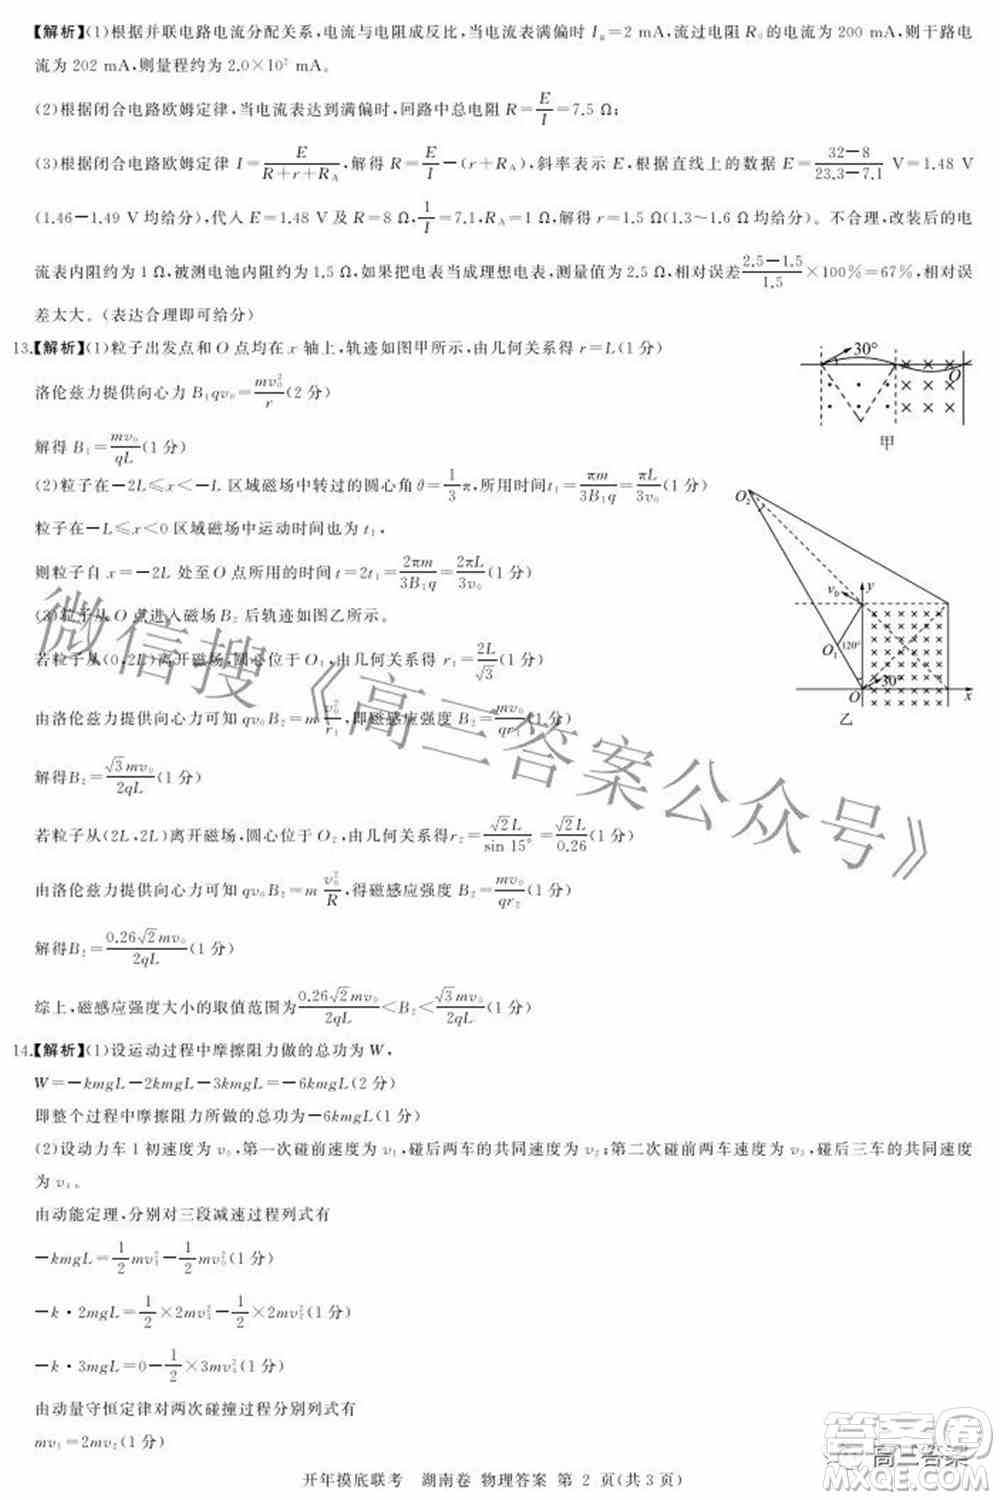 【解析】(1)根据并联电路电流分配关系,电流与电阻成反比,当电流表满偏时 I_g=2 mA,流过电阻 R_0 的电流为 200 mA,则干路电
流为 202 mA,则量程约为 2.0×10² mA。
(2)根据闭合电路欧姆定律,当电流表达到满偏时,回路中总电阻 R=E/I=7.5 Ω;
(3)根据闭合电路欧姆定律 I=E/(R+r+R_A),解得 R=E/I-(r+R_A),斜率表示 E,根据直线上的数据 E=(32-8)/(23.3-7.1) V=1.48 V
(1.46-1.49 V 均给分),代入 E=1.48 V 及 R=8 Ω,1/I=7.1,R_A=1 Ω,解得 r=1.5 Ω(1.3~1.6 Ω 均给分)。不合理,改装后的电
流表内阻约为 1 Ω,被测电池内阻为 1.5 Ω,如果把电表当成理想电表,测量值为 2.5 Ω,相对误差(2.5-1.5)/1.5×100%=67%,相对误
差太大。(表达合理即可给分)
13.【解析】(1)粒子出发点和 O 点均在 x 轴上,轨迹如图甲所示,由几何关系得 r=L(1 分)
洛伦兹力提供向心力 B_1qv_0=mv_0²/r(2 分)
解得 B_1=mv_0/qL(1 分)
30°
O
甲
(2)粒子在-2L≤x<-L 区域磁场中转过的圆心角 θ=1/3π,所用时间t_1=πm/3B_1q=πL/3v_0(1 分)
粒子在-L≤x<0 区域磁场中运动时间也为 t_1,
则粒子自 x=-2L 处至 O 点所用的时间 t=2t_1=2πm/3B_1q=2πL/3v_0(1 分)
(3)粒子从 O 点进入磁场 B_2 后轨迹如图乙所示。
若粒子从(0,2L)离开磁场,圆心位于 O_1,由几何关系得 r_1=2L/√3(1 分)
由洛伦兹力提供向心力可知 qv_0B_2=m v_0²/r_1,即磁感应强度 B_2=mv_0/qr_1(1 分)
解得B_2=√3mv_0/2qL(1 分)
O_2
v_0
y
O_1
120°
30°
O
x
乙
若粒子从(2L,2L)离开磁场,圆心位于 O_2,由几何关系得r_2=√2L/sin 15°=√2L/0.26(1 分)
由洛伦兹力提供向心力可知 qv_0B_2=m v_0²/R,得磁感应强度 B_2=mv_0/qr_2(1 分)
解得B_2=0.26√2mv_0/2qL(1 分)
综上,磁感应强度大小的取值范围为0.26√2mv_0/2qL<B_2<√3mv_0/2qL(1 分)
14.【解析】(1)设运动过程中摩擦阻力做的总功为 W,
W=-kmgL-2kmgL-3kmgL=-6kmgL(1 分)
即整个过程中摩擦阻力所做的总功为-6kmgL(1 分)
(2)设动力车 1 初速度为 v_0,第一次碰前速度为 v_1,碰后两车的共同速度为 v_2;第二次碰前两车速度为 v_3,碰后三车的共同速度
为 v_4。
由动能定理,分别对三段减速过程列式有
-kmgL=1/2mv_1²-1/2mv_0²(1 分)
-k·2mgL=1/2×2mv_3²-1/2×2mv_2²(1 分)
-k·3mgL=0-1/2×3mv_4²(1 分)
由动量守恒定律对两次碰撞过程分别列式有
mv_1=2mv_2(1 分)
开年摸底联考 湖南卷 物理答案 第 2 页(共 3 页)
微信搜《高三答案公众号》
高三答案
答案圈
MXQE.COM